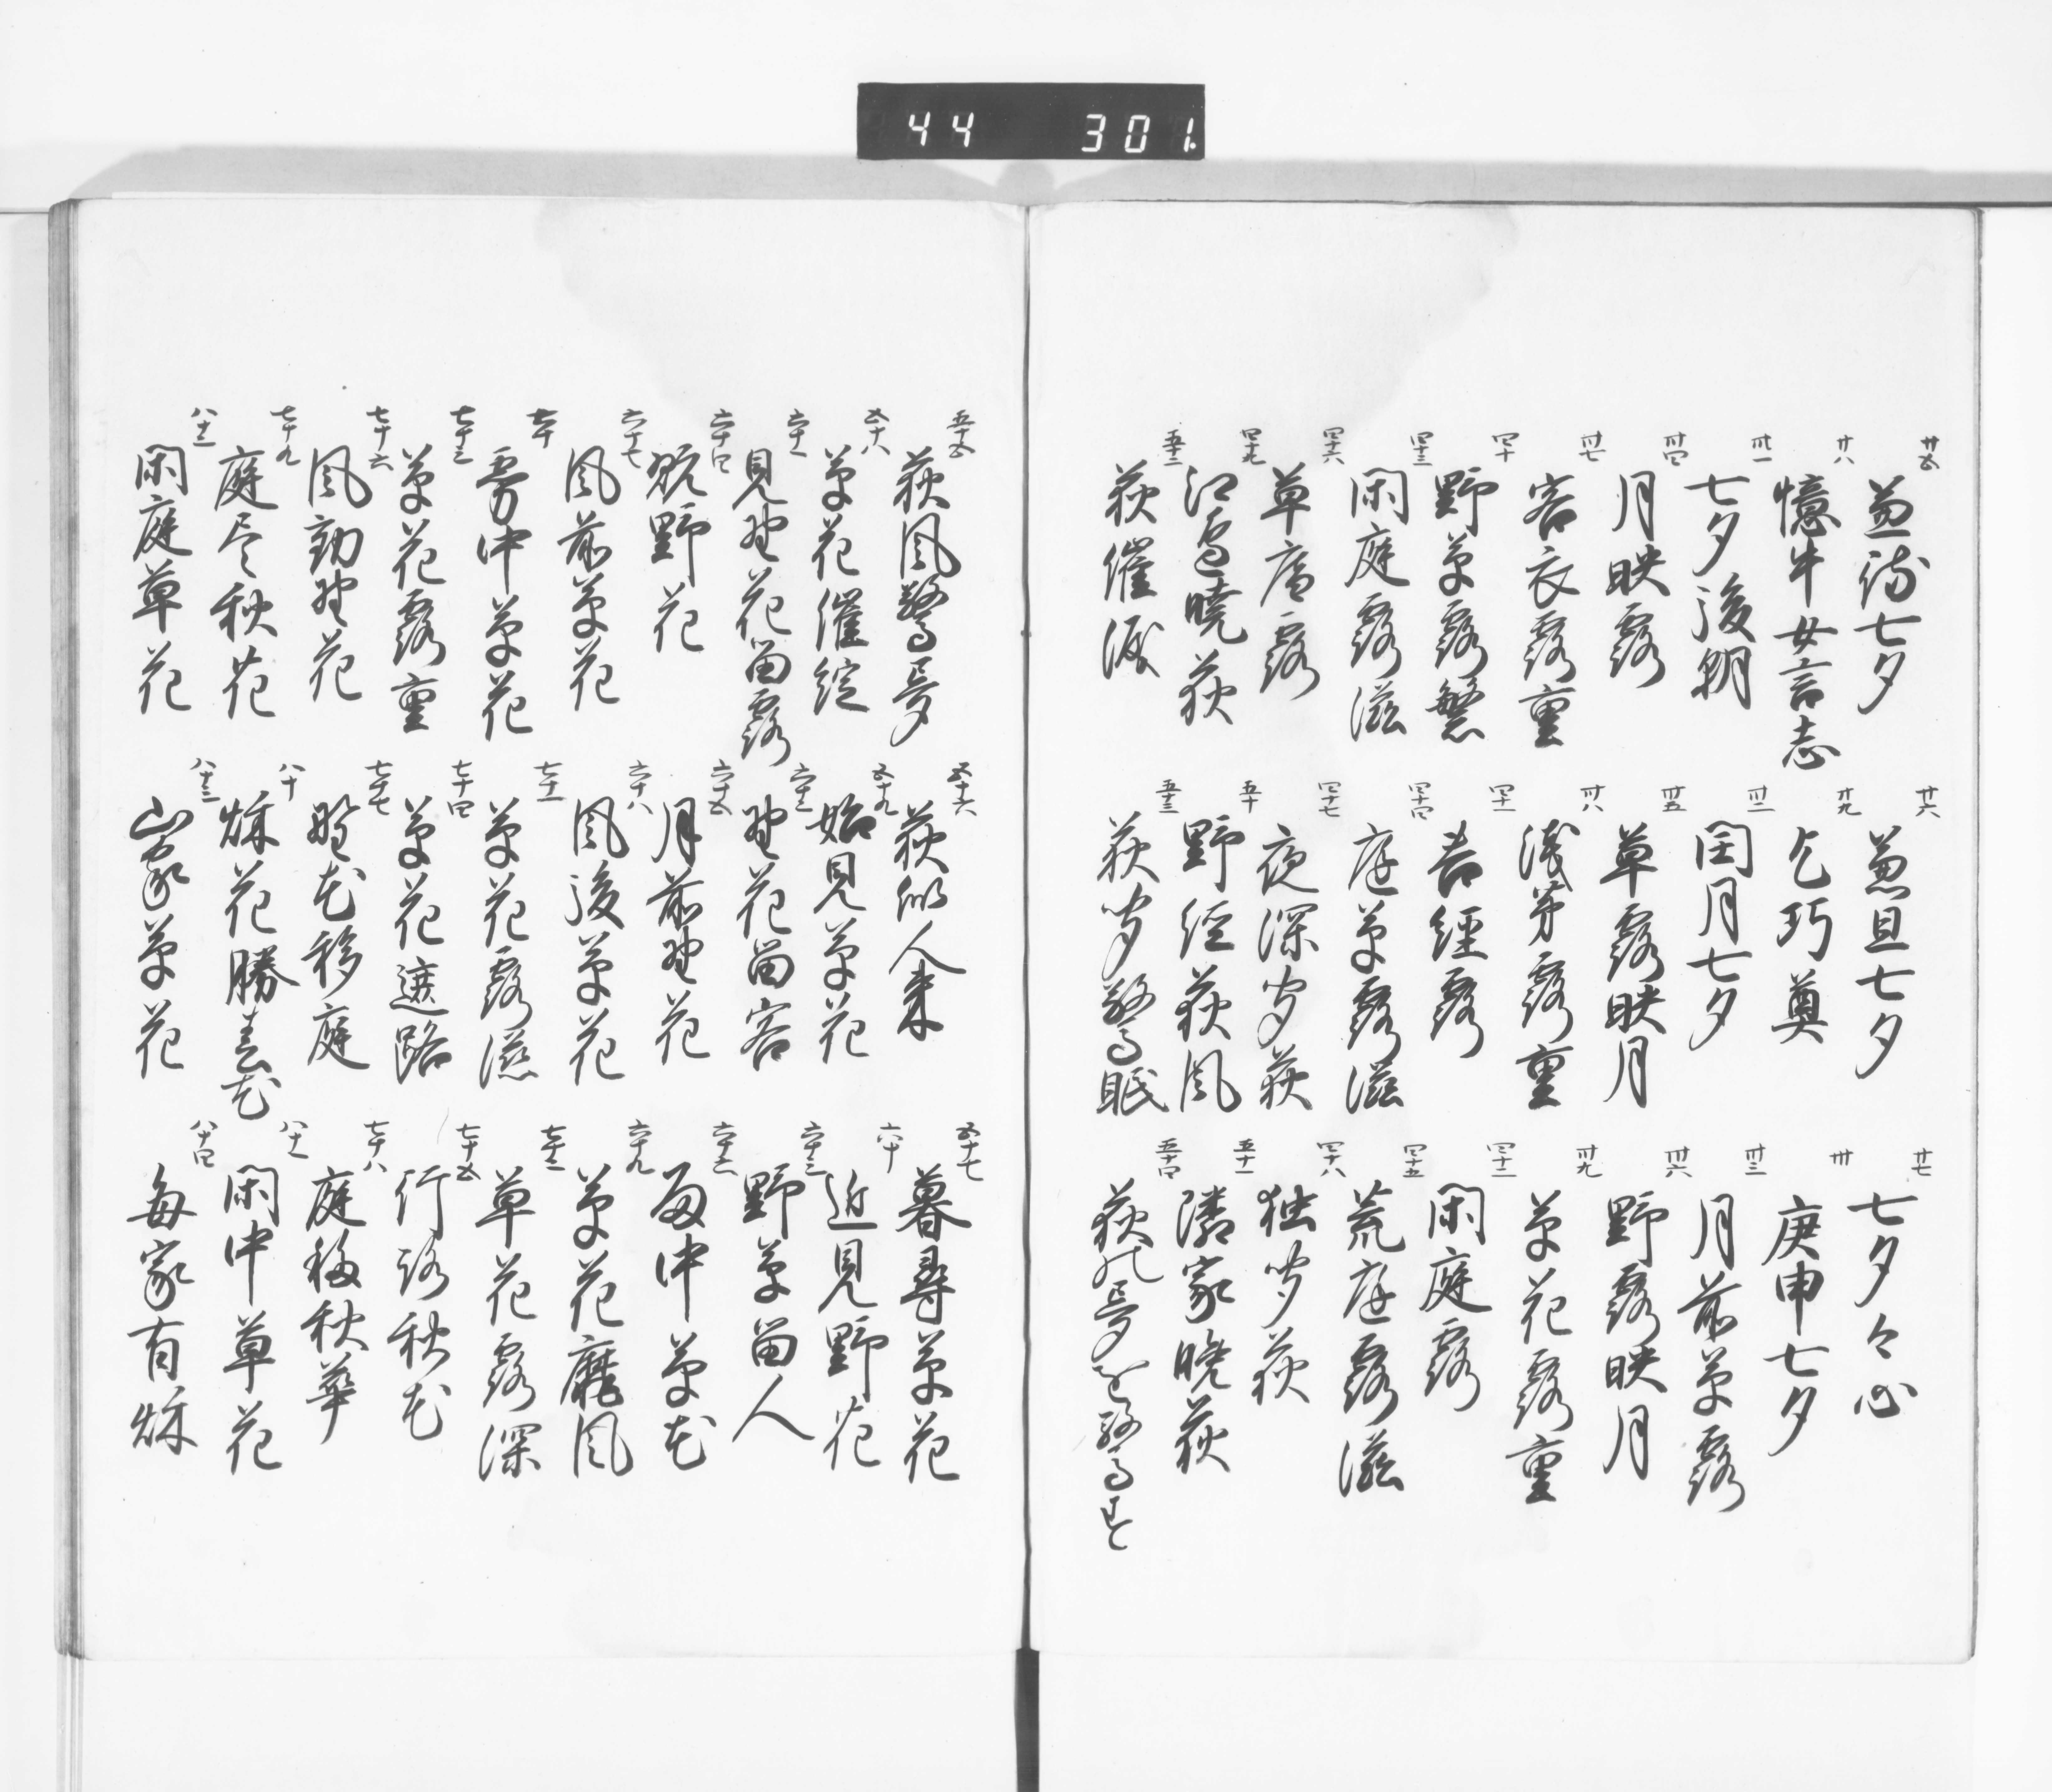 44 301
廿五 兼待七夕 廿六 兼且七夕 廿七 七夕々心
廿八 憶牛女言志 廿九 乞巧奠 卅 庚申七夕
卅一 七夕後朝 卅二 閏月七夕 卅三 月前草露
卅四 月映露 卅五 草露映月 卅六 野露映月
卅七 客衣露重 卅八 浅茅露重 卅九 草花露重
四十 野草露繁 四十一 苔径露 四十二 閑庭露
四十三 閑庭露滋 四十四 庭草露滋 四十五 荒庭露滋
四十六 草庵露 四十七 夜深聞荻 四十八 独聞荻
四十九 江辺暁荻 五十 野径荻風 五十一 隣家晩荻
五十二 荻催涙 五十三 荻声驚眠 五十四 荻の夢を驚す
五十五 荻風驚夢 五十六 荻似人来 五十七 暮尋草花
五十八 草花催綻 五十九 始見草花 六十 近見野花
六十一 見野花留露 六十二 野花留客 六十三 野草留人
六十四 野花 六十五 月前野花 六十六 雨中草花
六十七 風前草花 六十八 風後草花 六十九 草花靡風
七十 雾中草花 七十一 草花露滋 七十二 草花露深
七十三 草花露重 七十四 草花遮路 七十五 行路秋花
七十六 風動野花 七十七 野花移庭 七十八 庭移秋華
七十九 庭尽秋花 八十 秌花勝春花 八十一 閑中草花
八十二 閑庭草花 八十三 山家草花 八十四 毎家有秌